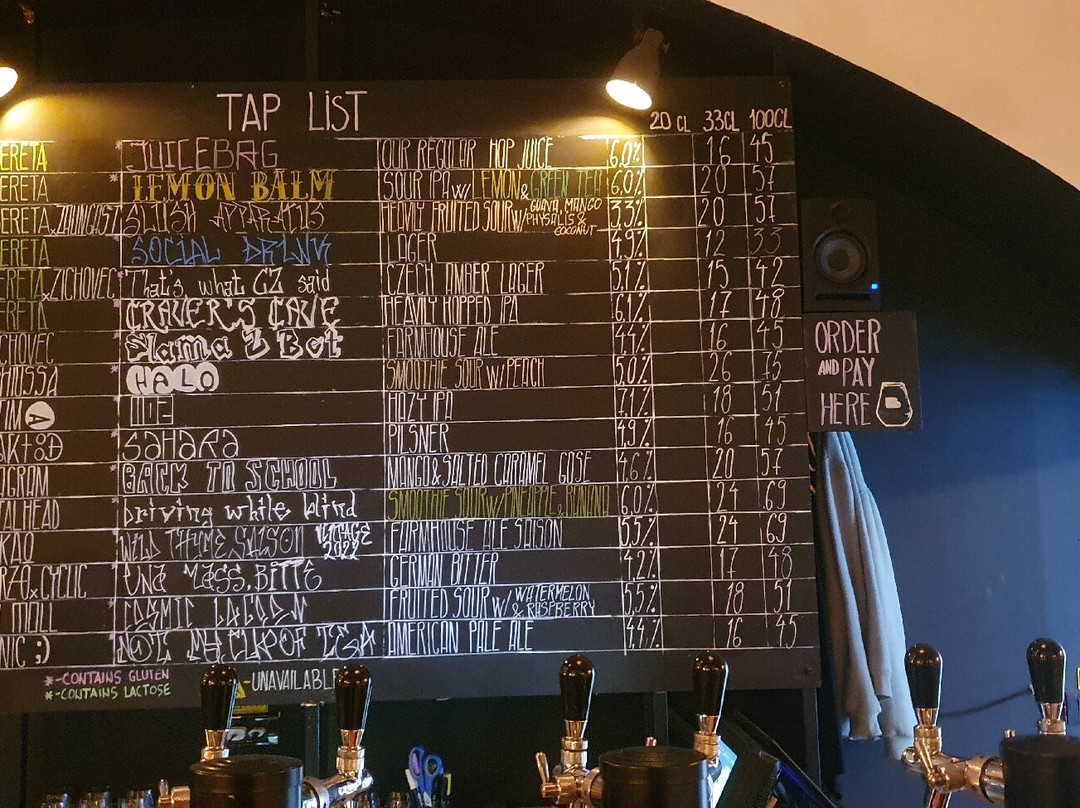 TAP LIST
20 CL 33CL 100CL
ERETA * JUICEBAG OUR REGULAR HOP JUICE 6,0% 16 45
ERETA * LEMON BALM SOUR IPA W/ LEMON & GREEN TEA 6,0% 20 57
ERETA x ZAUNGAST SLUSH APPARATUS HEAVILY FRUITED SOUR W/ GUAVA, MANGO PHYSALIS & COCONUT 3,3% 20 57
ERETA SOCIAL DRINK LAGER 4,9% 12 33
ERETA x ZICHOVEC * That's what CZ said CZECH AMBER LAGER 5,1% 15 42
ERETA CRAVER'S CAVE HEAVILY HOPPED IPA 6,1% 17 48
CHOVEC Slama Z Bot FARMHOUSE ALE 4,4% 16 45
* HALO SMOOTHIE SOUR W/ PEACH 5,0% 26 75
HAZY IPA 7,1% 18 51
* SAHARA PILSNER 4,9% 16 45
AGRAM * BACK TO SCHOOL MANGO & SALTED CARAMEL GOSE 4,6% 20 57
ALHEAD * Driving while blind SMOOTHIE SOUR W/ PINEAPPLE, BANANA 6,0% 24 69
KAO * WILD THYME SAISON VINTAGE 2022 FARMHOUSE ALE SAISON 5,5% 24 69
RZA x CYCLIC * UND MASS, BITTE GERMAN BITTER 4,2% 17 48
MOLL * COSMIC LAGOON FRUITED SOUR W/ WATERMELON & RASPBERRY 5,5% 18 51
NIC ;) * NOT MY CUP OF TEA AMERICAN PALE ALE 4,4% 16 45
*-CONTAINS GLUTEN
*-CONTAINS LACTOSE
-UNAVAILABLE
ORDER
AND PAY
HERE